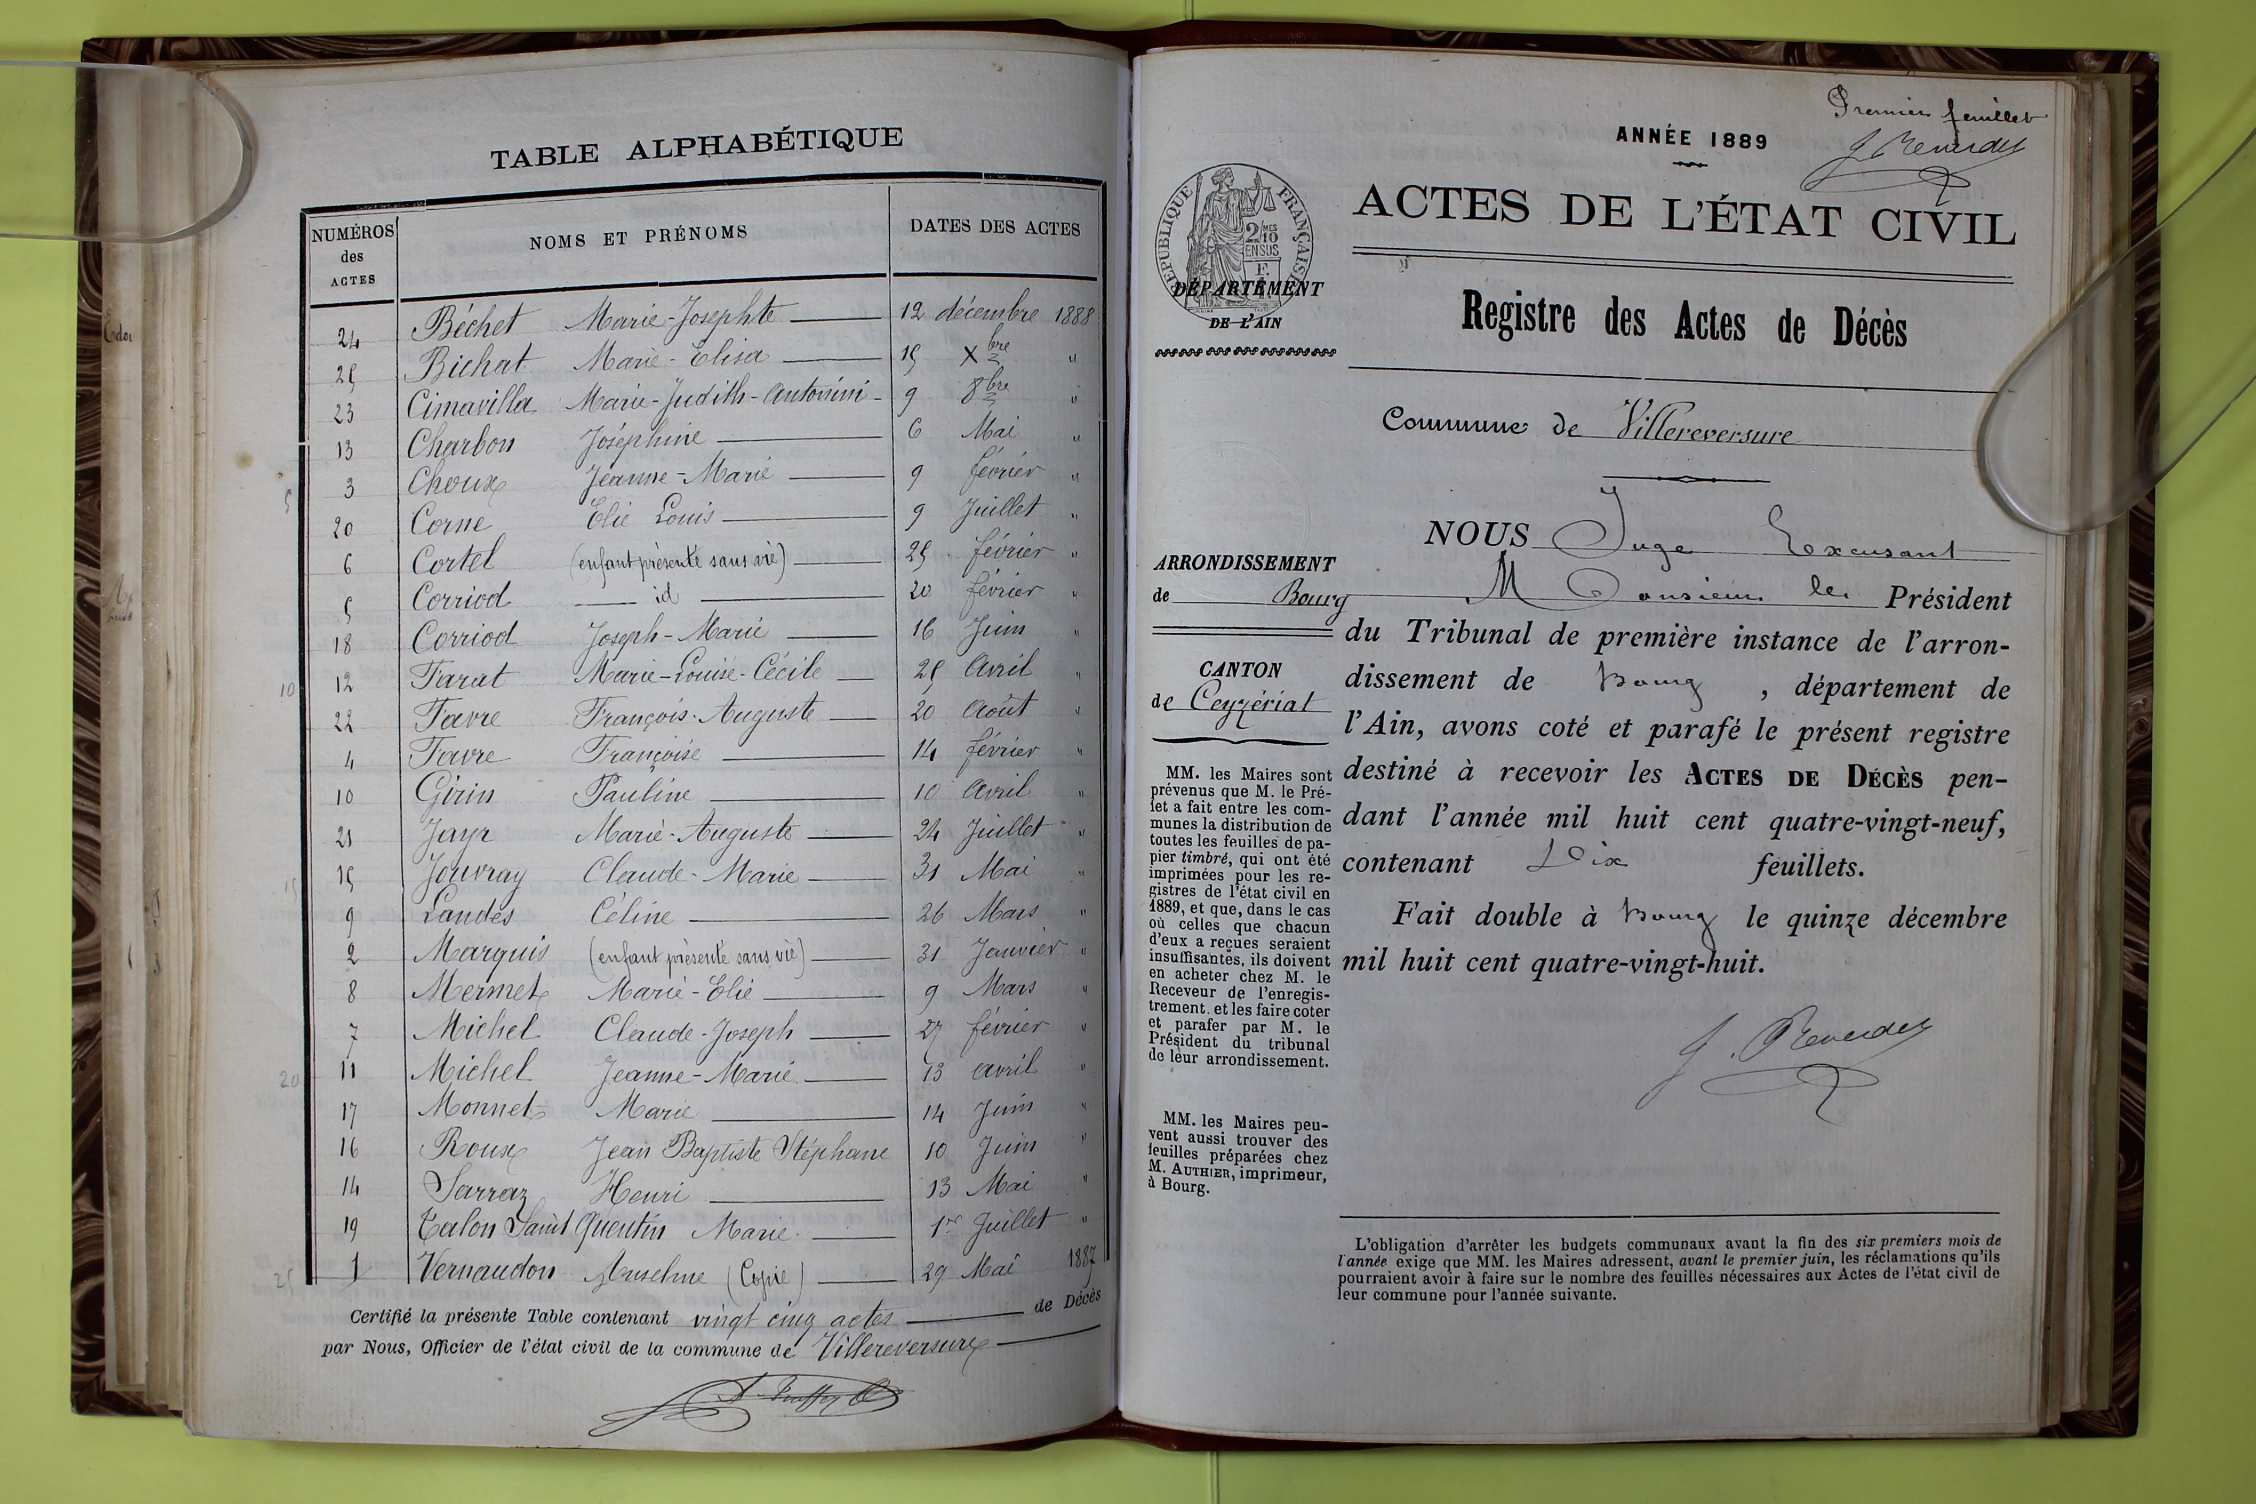 TABLE ALPHABÉTIQUE
NUMÉROS des ACTES NOMS ET PRÉNOMS DATES DES ACTES
24 Béchet Marie-Josephte 12 décembre 1888
25 Bichat Marie-Elisa 15 Xbre "
23 Cimavilla Marie-Judith-Antonini 9 8bre "
13 Charbon Joséphine 6 Mai "
3 Choux Jeanne-Marie 9 février "
5
20 Corne Elie Louis 9 Juillet "
6 Cortel (enfant présenté sans vie) 25 février "
5 Corriod id 20 février "
18 Corriod Joseph-Marie 16 Juin "
10 12 Farat Marie-Louise-Cécile 25 Avril "
22 Favre François-Auguste 20 Août "
4 Favre Françoise 14 février "
10 Girin Pauline 10 Avril "
21 Jayr Marie-Auguste 24 Juillet "
15 15 Jouvray Claude-Marie 31 Mai "
9 Landes Céline 26 Mars "
2 Marquis (enfant présenté sans vie) 31 Janvier "
8 Mermet Marie-Elie 9 Mars "
7 Michel Claude-Joseph 27 février "
20 11 Michel Jeanne-Marie 13 avril "
17 Monnet Marie 14 Juin "
16 Roux Jean Baptiste Stéphane 10 Juin "
14 Sarraz Henri 13 Mai "
19 Talon Saint Quentin Marie 1er Juillet "
25 1 Vernaudon Anselme (Copie) 29 Mai 1887
Certifié la présente Table contenant vingt cinq actes de Décès
par Nous, Officier de l'état civil de la commune de Villereversure
Premier feuillet
ANNÉE 1889
J. Reverdy
RÉPUBLIQUE FRANÇAISE
2/10 MES
EN SUS
F.
ACTES DE L'ÉTAT CIVIL
DÉPARTEMENT
DE L'AIN
Registre des Actes de Décès
Commune de Villereversure
ARRONDISSEMENT
de Bourg
CANTON
de Ceyzériat
MM. les Maires sont
prévenus que M. le Pré-
fet a fait entre les com-
munes la distribution de
toutes les feuilles de pa-
pier timbré, qui ont été
imprimées pour les re-
gistres de l'état civil en
1889, et que, dans le cas
où celles que chacun
d'eux a reçues seraient
insuffisantes, ils doivent
en acheter chez M. le
Receveur de l'enregis-
trement. et les faire coter
et parafer par M. le
Président du tribunal
de leur arrondissement.
MM. les Maires peu-
vent aussi trouver des
feuilles préparées chez
M. AUTHIER, imprimeur,
à Bourg.
NOUS Juge Excusant
Monsieur le Président
du Tribunal de première instance de l'arron-
dissement de Bourg, département de
l'Ain, avons coté et parafé le présent registre
destiné à recevoir les ACTES DE DÉCÈS pen-
dant l'année mil huit cent quatre-vingt-neuf,
contenant Dix feuillets.
Fait double à Bourg le quinze décembre
mil huit cent quatre-vingt-huit.
J. Reverdy
L'obligation d'arrêter les budgets communaux avant la fin des six premiers mois de
l'année exige que MM. les Maires adressent, avant le premier juin, les réclamations qu'ils
pourraient avoir à faire sur le nombre des feuilles nécessaires aux Actes de l'état civil de
leur commune pour l'année suivante.